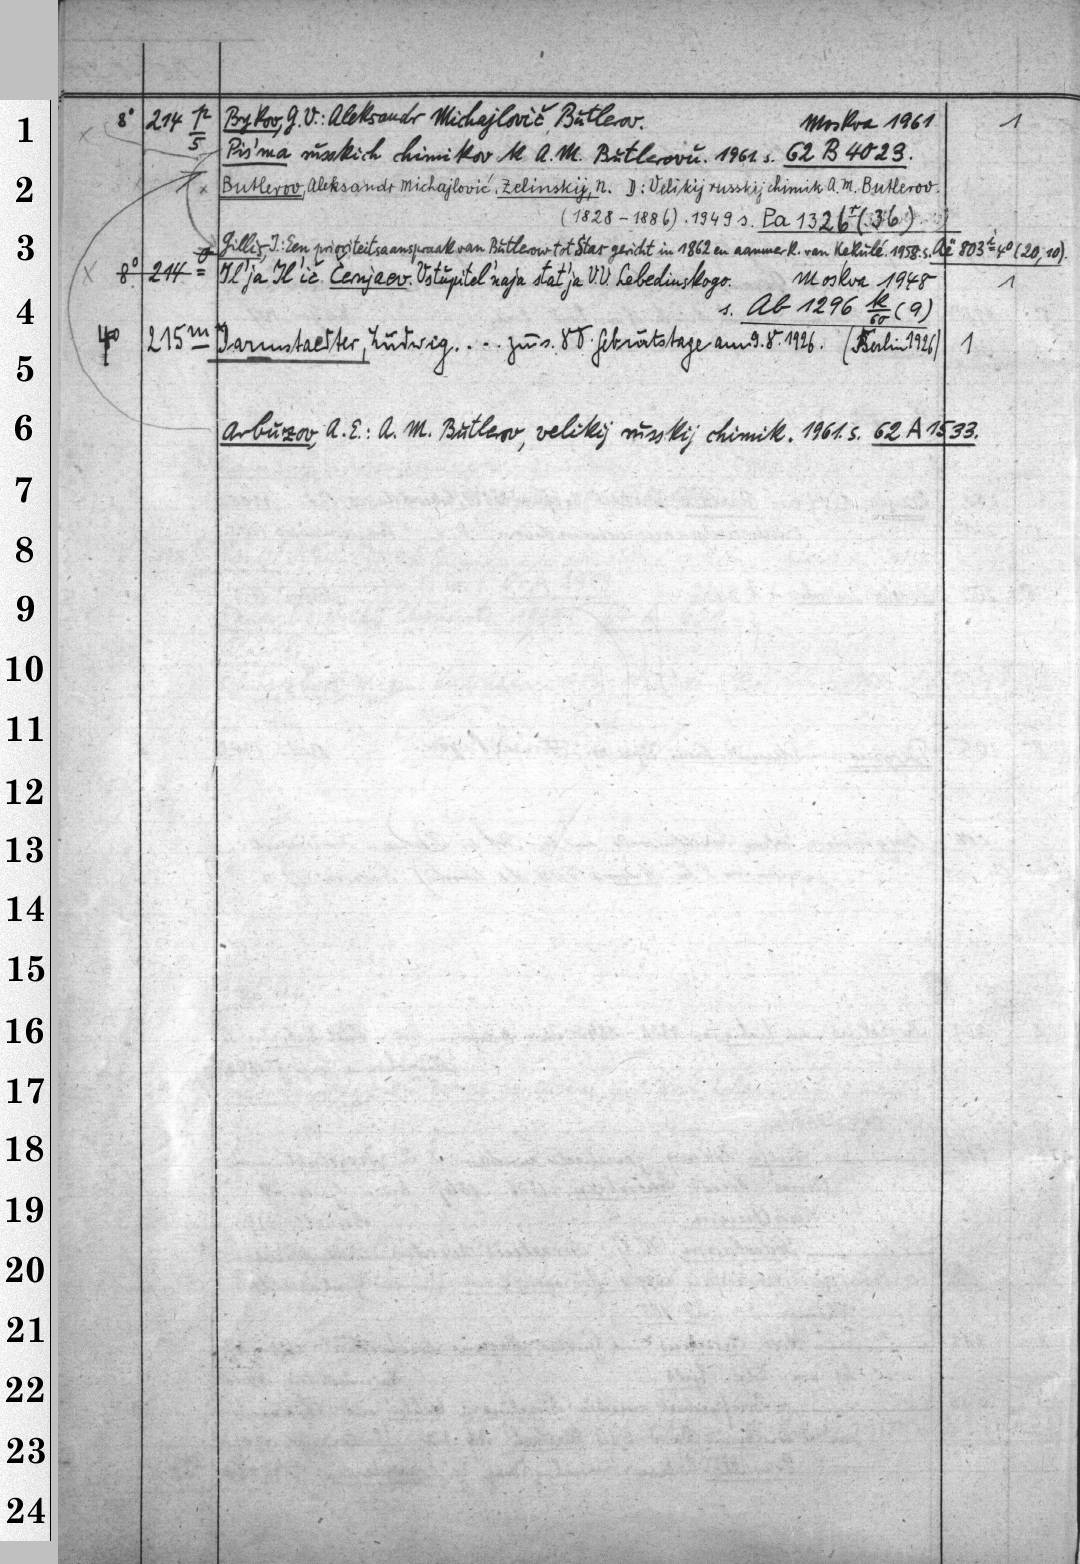 1 8° 214 p/5 Bykov, G.V.: Aleksandr Michajlovič Butlerov. Moskva 1961 1
Pis'ma russkich chimikov k A.M. Butlerovu. 1961. s. 62 B 4029.
2 Butlerov, Aleksandr Michajlovič. Zelinskij, N. D: Velikij russkij chimik A.M. Butlerov.
(1828-1886). 1949 s. Pa 1326 (36)
3 Gillis, J.: Een prioriteitsaanspraak van Butlerow tot Star gericht in 1862 en aanmerk. van Kekulé. 1958. s. Ac 803 4° (20,10).
8° 214 = Il'ja Il'ič Černjaev. Vstupitel'naja stat'ja V.V. Lebedinskogo. Moskva 1948 1
4 s. Ab 1296 k/60 (9)
4° 215 m Darmstaedter, Ludwig. . . . zum s. 80. Geburtstage am 9.8.1926. (Berlin 1926) 1
5
6 Arbuzov, A.E.: A. M. Butlerov, velikij russkij chimik. 1961. s. 62 A 1533.
7
8
9
10
11
12
13
14
15
16
17
18
19
20
21
22
23
24